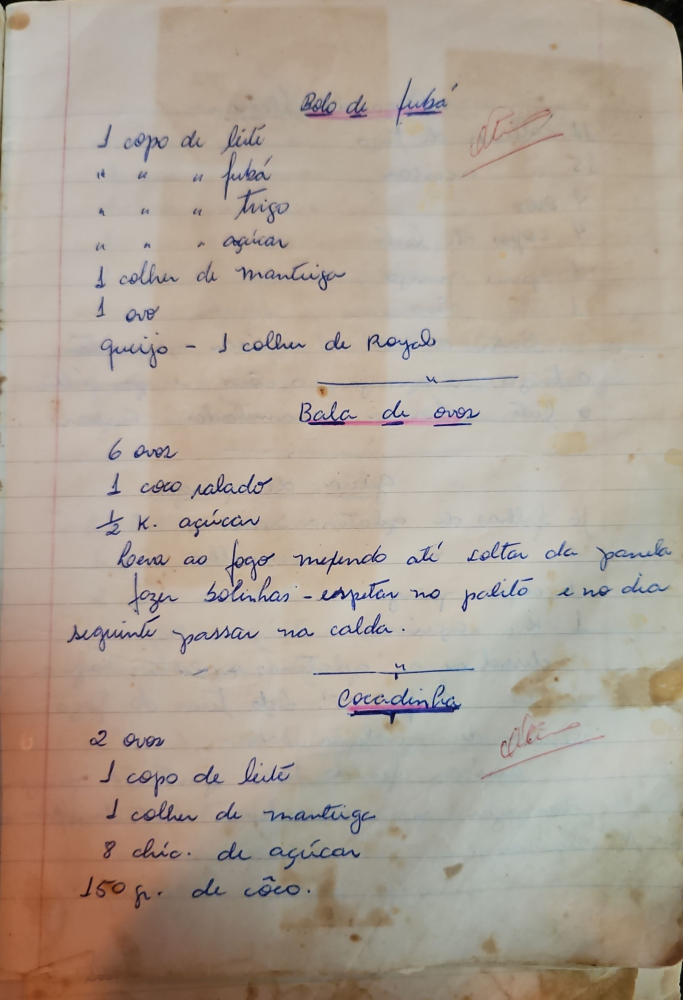 Bolo de fubá
1 copo de leite
" " " fubá
" " " trigo
" " " açúcar
1 colher de manteiga
1 ovo
queijo - 1 colher de Royal
"
Bala de ovos
6 ovos
1 coco ralado
1/2 K. açúcar
Leva ao fogo mexendo até soltar da panela
fazer bolinhas - espetar no palito e no dia
seguinte passar na calda.
"
Cocadinha
2 ovos
1 copo de leite
1 colher de manteiga
8 chic. de açúcar
150 gr. de côco.